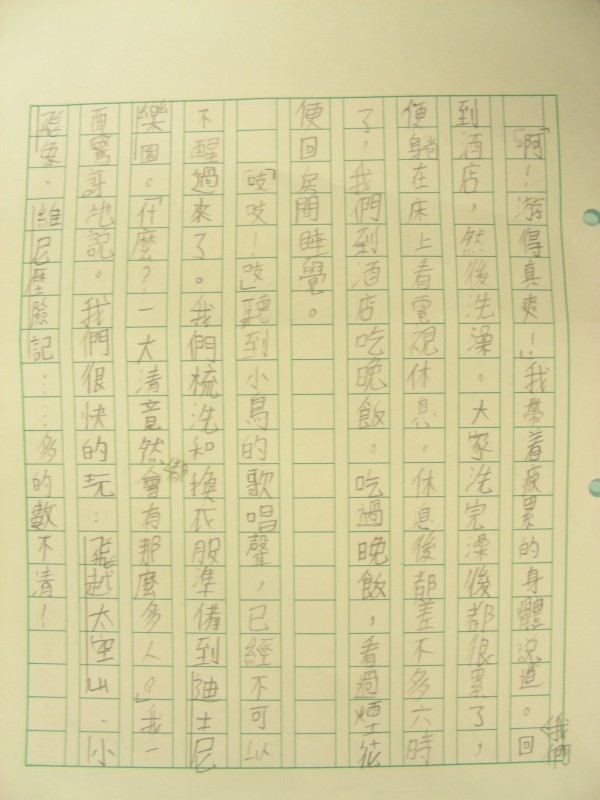 「啊！」游得真爽！」我帶着疲累的身體說道。我們回
到酒店，然後洗澡。大家洗完澡後都很累了，
便躺在床上看電視休息。休息後都差不多六時
了，我們到酒店吃晚飯。吃過晚飯，看過煙花
便回房間睡覺。
「吱吱！吱」聽到小鳥的歌唱聲，已經不可以
不醒過來了。我們梳洗和換衣服準備到迪士尼
樂園。「什麼？一大清竟然會有那麼多人？」我一
面驚訝地說。我們很快的玩：飛越太空山、小
飛象、維尼歷險記……多的數不清！